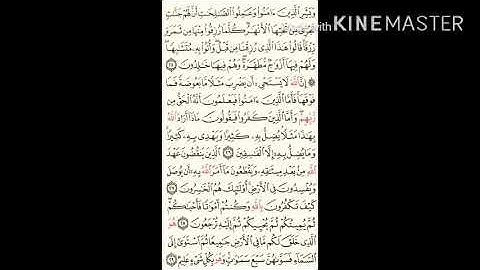 Made with KINEMASTER
وَبَشِّرِ الَّذِينَ ءَامَنُوا وَعَمِلُوا الصَّٰلِحَٰتِ أَنَّ لَهُمْ جَنَّٰتٍ
تَجْرِى مِن تَحْتِهَا الْأَنْهَٰرُ كُلَّمَا رُزِقُوا مِنْهَا مِن ثَمَرَةٍ
رِّزْقًا قَالُوا هَٰذَا الَّذِى رُزِقْنَا مِن قَبْلُ وَأُتُوا بِهِ مُتَشَٰبِهًا
وَلَهُمْ فِيهَا أَزْوَٰجٌ مُّطَهَّرَةٌ وَهُمْ فِيهَا خَٰلِدُونَ ٢٥
۞ إِنَّ اللَّهَ لَا يَسْتَحْىِ أَن يَضْرِبَ مَثَلًا مَّا بَعُوضَةً فَمَا
فَوْقَهَا فَأَمَّا الَّذِينَ ءَامَنُوا فَيَعْلَمُونَ أَنَّهُ الْحَقُّ مِن
رَّبِّهِمْ وَأَمَّا الَّذِينَ كَفَرُوا فَيَقُولُونَ مَاذَا أَرَادَ اللَّهُ
بِهَٰذَا مَثَلًا يُضِلُّ بِهِ كَثِيرًا وَيَهْدِى بِهِ كَثِيرًا
وَمَا يُضِلُّ بِهِ إِلَّا الْفَٰسِقِينَ ٢٦ الَّذِينَ يَنقُضُونَ عَهْدَ
اللَّهِ مِن بَعْدِ مِيثَٰقِهِ وَيَقْطَعُونَ مَا أَمَرَ اللَّهُ بِهِ أَن يُوصَلَ
وَيُفْسِدُونَ فِى الْأَرْضِ أُولَٰئِكَ هُمُ الْخَٰسِرُونَ ٢٧
كَيْفَ تَكْفُرُونَ بِاللَّهِ وَكُنتُمْ أَمْوَٰتًا فَأَحْيَٰكُمْ
ثُمَّ يُمِيتُكُمْ ثُمَّ يُحْيِيكُمْ ثُمَّ إِلَيْهِ تُرْجَعُونَ ٢٨ هُوَ
الَّذِى خَلَقَ لَكُم مَّا فِى الْأَرْضِ جَمِيعًا ثُمَّ اسْتَوَىٰ إِلَى
السَّمَاءِ فَسَوَّىٰهُنَّ سَبْعَ سَمَٰوَٰتٍ وَهُوَ بِكُلِّ شَىْءٍ عَلِيمٌ ٢٩